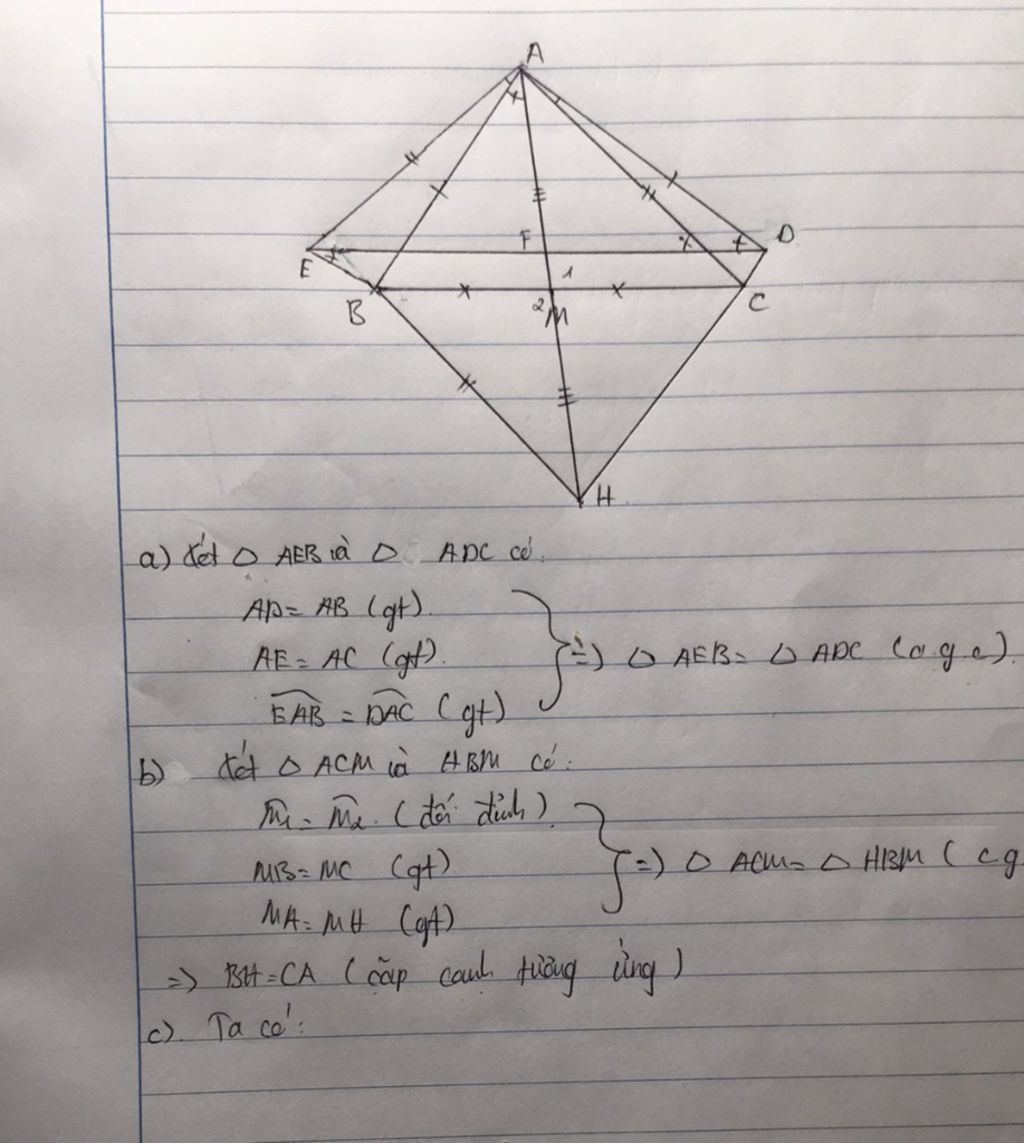 A
E
F
D
1
B
2
M
C
H
a) Xét △ AEB và △ ADC có:
AD = AB (gt).
AE = AC (gt).
EAB = DAC (gt)
=) △ AEB = △ ADC (c.g.c).
b) Xét △ ACM và HBM có:
M1 = M2. (đối đỉnh)
MB = MC (gt)
MA = MH (gt)
=) △ ACM = △ HBM ( c g
=> BH = CA (cặp cạnh tương ứng)
c). Ta có: